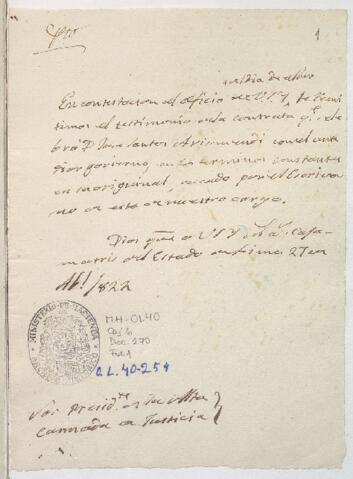 1
en dia de ahier
En contestacion al oficio de V.S.Y. le remi-
timos el testimonio de la contrata q.e cele-
bró D. Juan Santos Arismendi con el ante-
rior govierno, en los terminos constantes
en su original, sacado por el Escriva-
no de esta de nuestro cargo.
Dios gue a V.S.Y. Sa Casa
matriz del Estado en Lima 27 en
1822
MINISTERIO DE HACIENDA
M.H-OL40
Caj. 6
Doc. 270
Fol. 1
O.L. 40-254
Sor. Presid.te de la Alta
Camara de Justicia